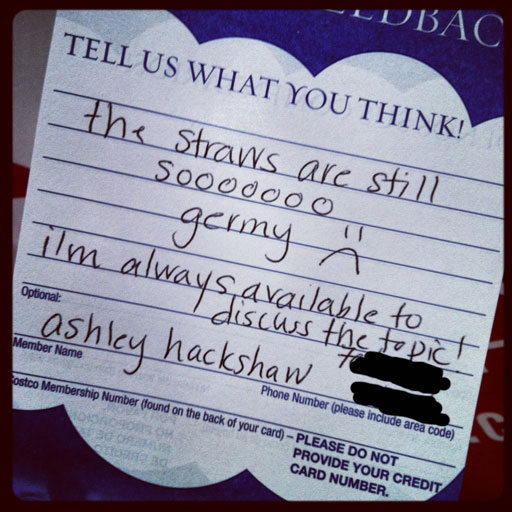 EEDBAC
TELL US WHAT YOU THINK!
the straws are still
sooooooo
germy
i'm always available to
discuss the topic!
Optional:
ashley hackshaw
Member Name
Phone Number (please include area code)
ostco Membership Number (found on the back of your card) – PLEASE DO NOT
PROVIDE YOUR CREDIT
CARD NUMBER.